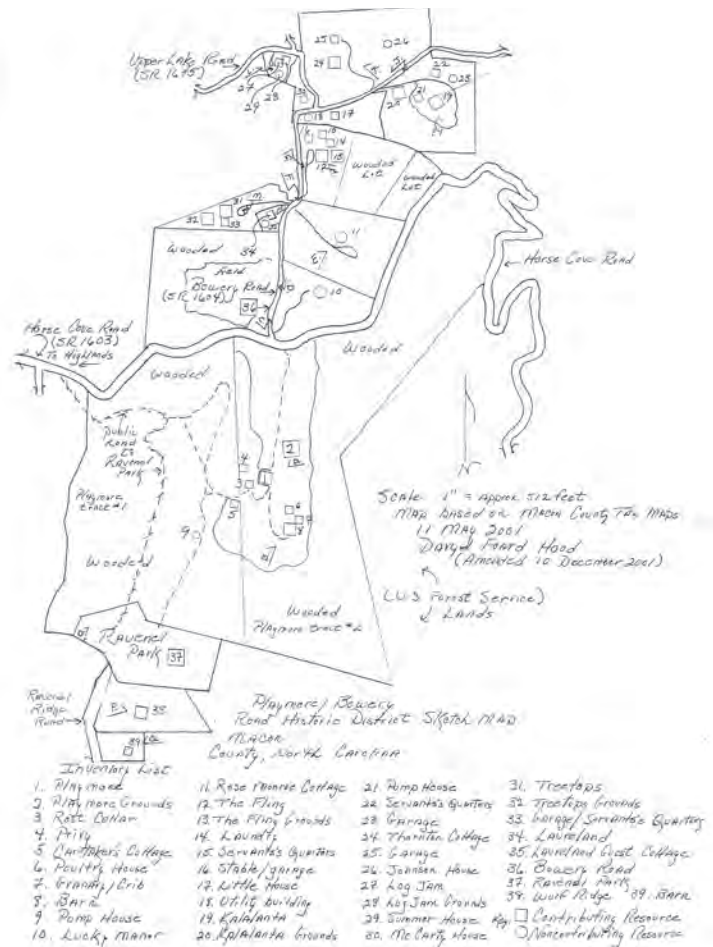 Upper Lake Road
(SR 1675)
25
26
24
22
23
27
29
28
21
19
18
17
16
14
12
13
Wooded
Lot
Wooded
Lot
31
32
33
34
11
10
Wooded
Field
Bowery Road
(SR 1604)
36
Horse Cove Road
Horse Cove Road
(SR 1603)
To Highlands
Wooded
Wooded
Public
Road
to
Ravenel
Park
Playmore
tract #1
Wooded
9
4
3
5
2
6
7
8
N
Scale 1" = approx 512 feet
Map based on Macon County Tax Maps
11 May 2001
Davyd Foard Hood
(Amended 10 December 2001)
(U.S. Forest Service)
Lands
Wooded
Playmore tract #2
Ravenel
Park
37
Ravenel
Ridge
Road
38
39
Playmore/Bowery
Road Historic District Sketch Map
Macon
County, North Carolina
Inventory List
1. Playmore
2. Playmore Grounds
3. Root Cellar
4. Privy
5. Caretaker's Cottage
6. Poultry House
7. Granary/Crib
8. Barn
9. Pump House
10. Lucky Manor
11. Rose Monroe Cottage
12. The Fling
13. The Fling Grounds
14. Laundry
15. Servants's Quarters
16. Stable/garage
17. Little House
18. Utility building
19. Kalalanta
20. Kalalanta Grounds
21. Pump House
22. Servants's Quarters
23. Garage
24. Thornton Cottage
25. Garage
26. Johnson House
27. Log Jam
28. Log Jam Grounds
29. Summer House
30. McCarty House
31. Treetops
32. Treetops Grounds
33. Garage/Servants's Quarters
34. Laureland
35. Laureland Guest Cottage
36. Bowery Road
37. Ravenel Park
38. Wolf Ridge 39. Barn
Key □ Contributing Resource
○ Noncontributing Resource